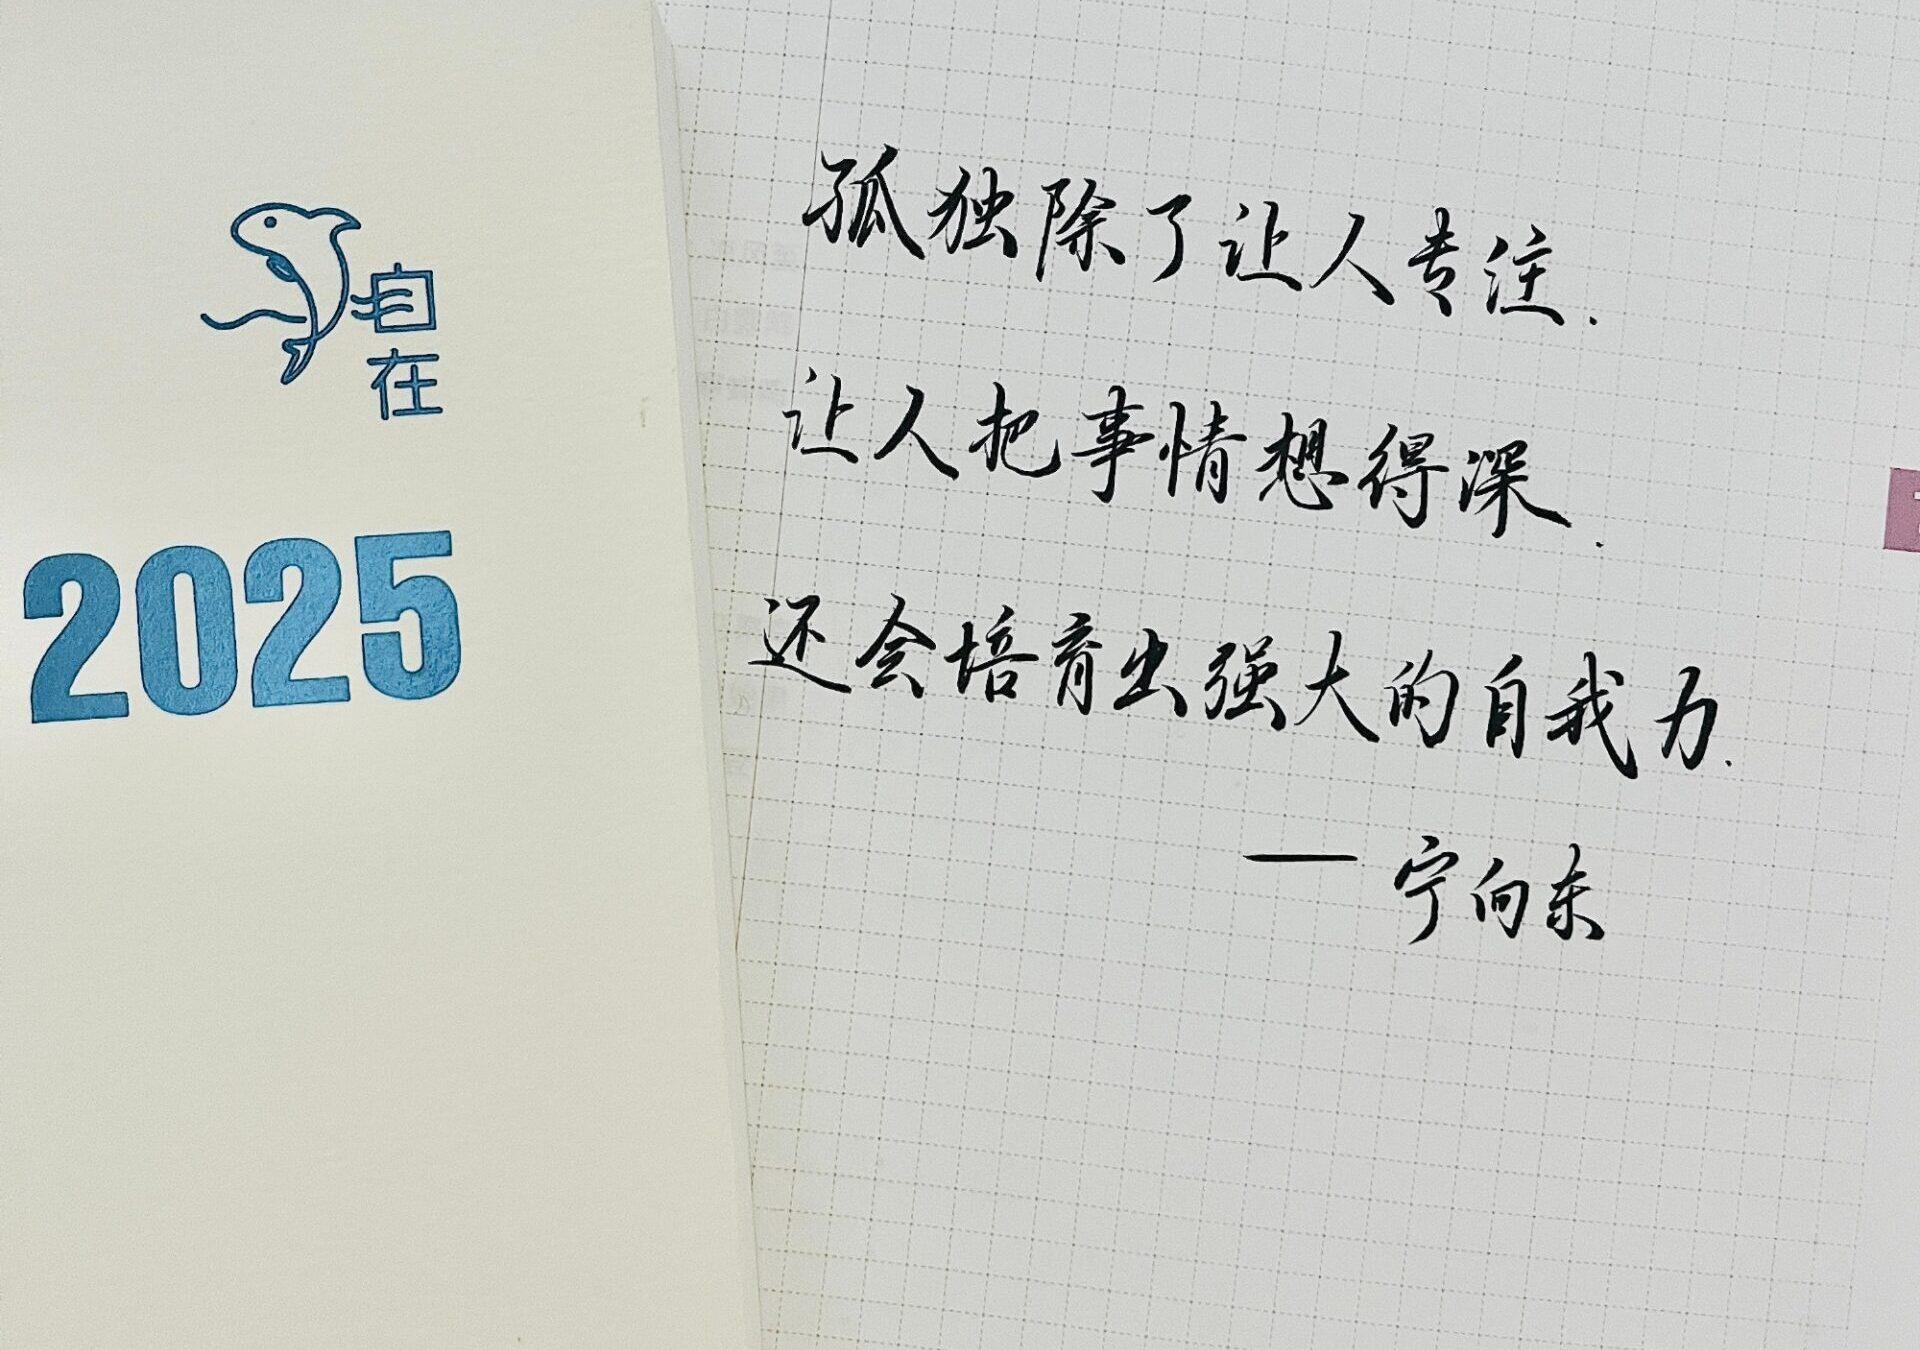 自在
2025
孤独除了让人专注.
让人把事情想得深.
还会培育出强大的自我力.
——宁向东